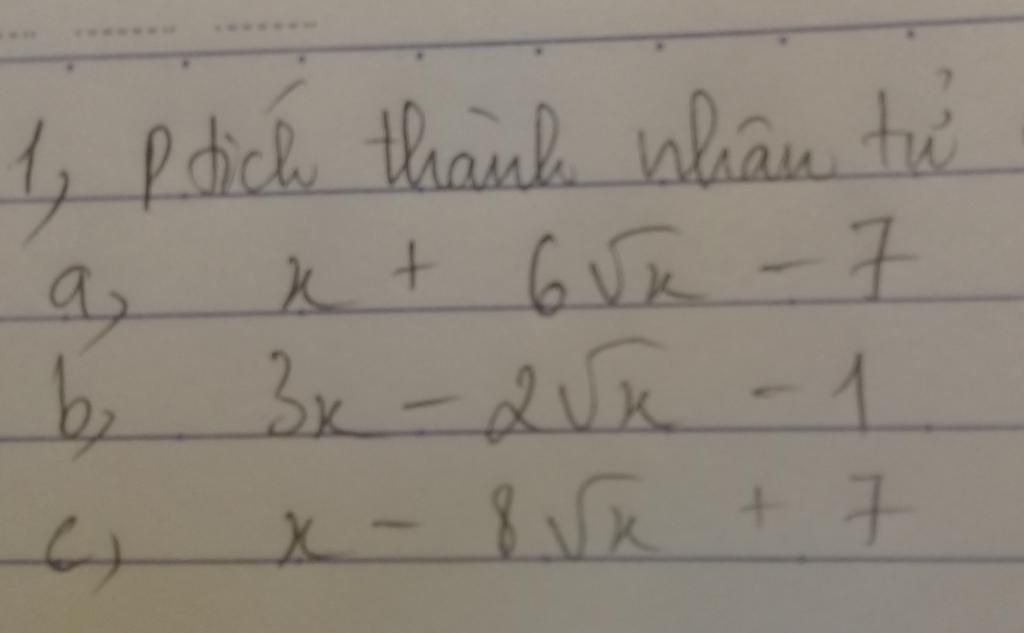 1, ptích thành nhân tử
a, x + 6√x - 7
b, 3x - 2√x - 1
c, x - 8√x + 7